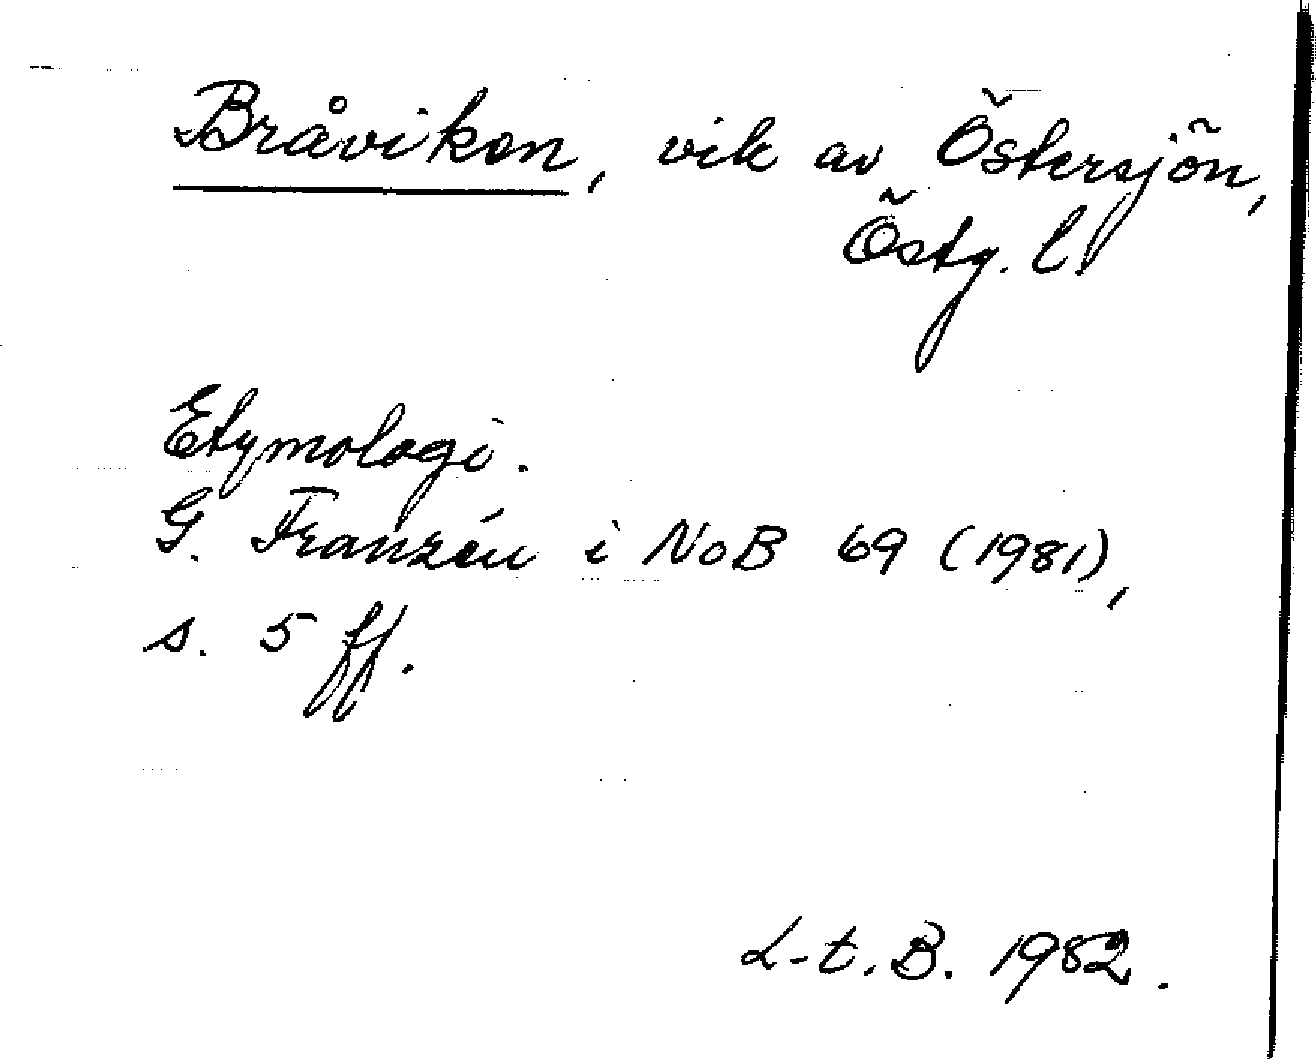 Bråviken, vik av Östersjön,
Östg. l.
Etymologi.
G. Franzén i NoB 69 (1981),
s. 5 ff.
L-t. B. 1982.